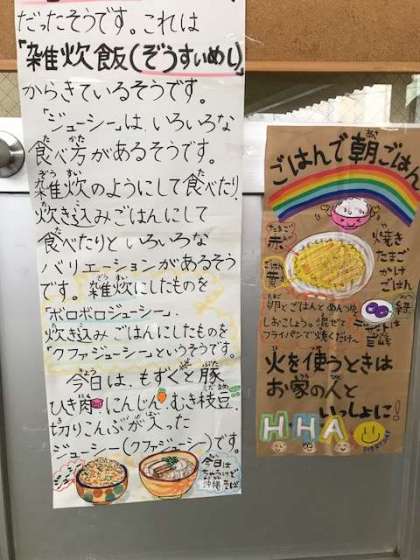 だったそうです。これは
「雑炊飯(ぞうすいめし)」
からきているそうです。
「ジューシー」は、いろいろな
食べ方があるそうです。
雑炊のようにして食べたり、
炊き込みごはんにして
食べたりといろいろな
バリエーションがあるそう
です。雑炊にしたものを
「ボロボロジューシー」、
炊き込みごはんにしたものを
「クファジューシー」というそうです。
今日は、もずくと豚
ひき肉、にんじん、むき枝豆、
切りこんぶが入った
ジューシー(クファジューシー)です。
今日は
沖縄そば
ごはんで朝ごはん
赤
黄
緑
焼き
たまご
かけ
ごはん
卵とごはんとめんつゆ、
しおこしょう。混ぜて
フライパンで焼くだけ。
火を使うときは
お家の人と
いっしょに!
H・H・A